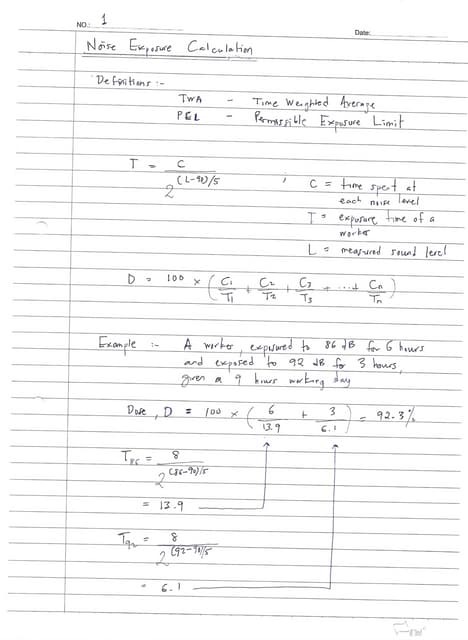 NO.: 1
Date:
Noise Exposure Calculation
Definitions :-
TWA - Time Weighted Average
PEL - Permissible Exposure Limit
T = C / 2^(L-90)/5 , C = time spent at
each noise level
T = exposure time of a
worker
L = measured sound level
D = 100 × (C1/T1 + C2/T2 + C3/T3 + ...+ Cn/Tn)
Example :- A worker, exposured to 86 dB for 6 hours
and exposed to 92 dB for 3 hours,
given a 9 hours working day
Dose, D = 100 × (6/13.9 + 3/6.1) = 92.3%
T86 = 8 / 2^(86-90)/5
= 13.9
T92 = 8 / 2^(92-90)/5
= 6.1